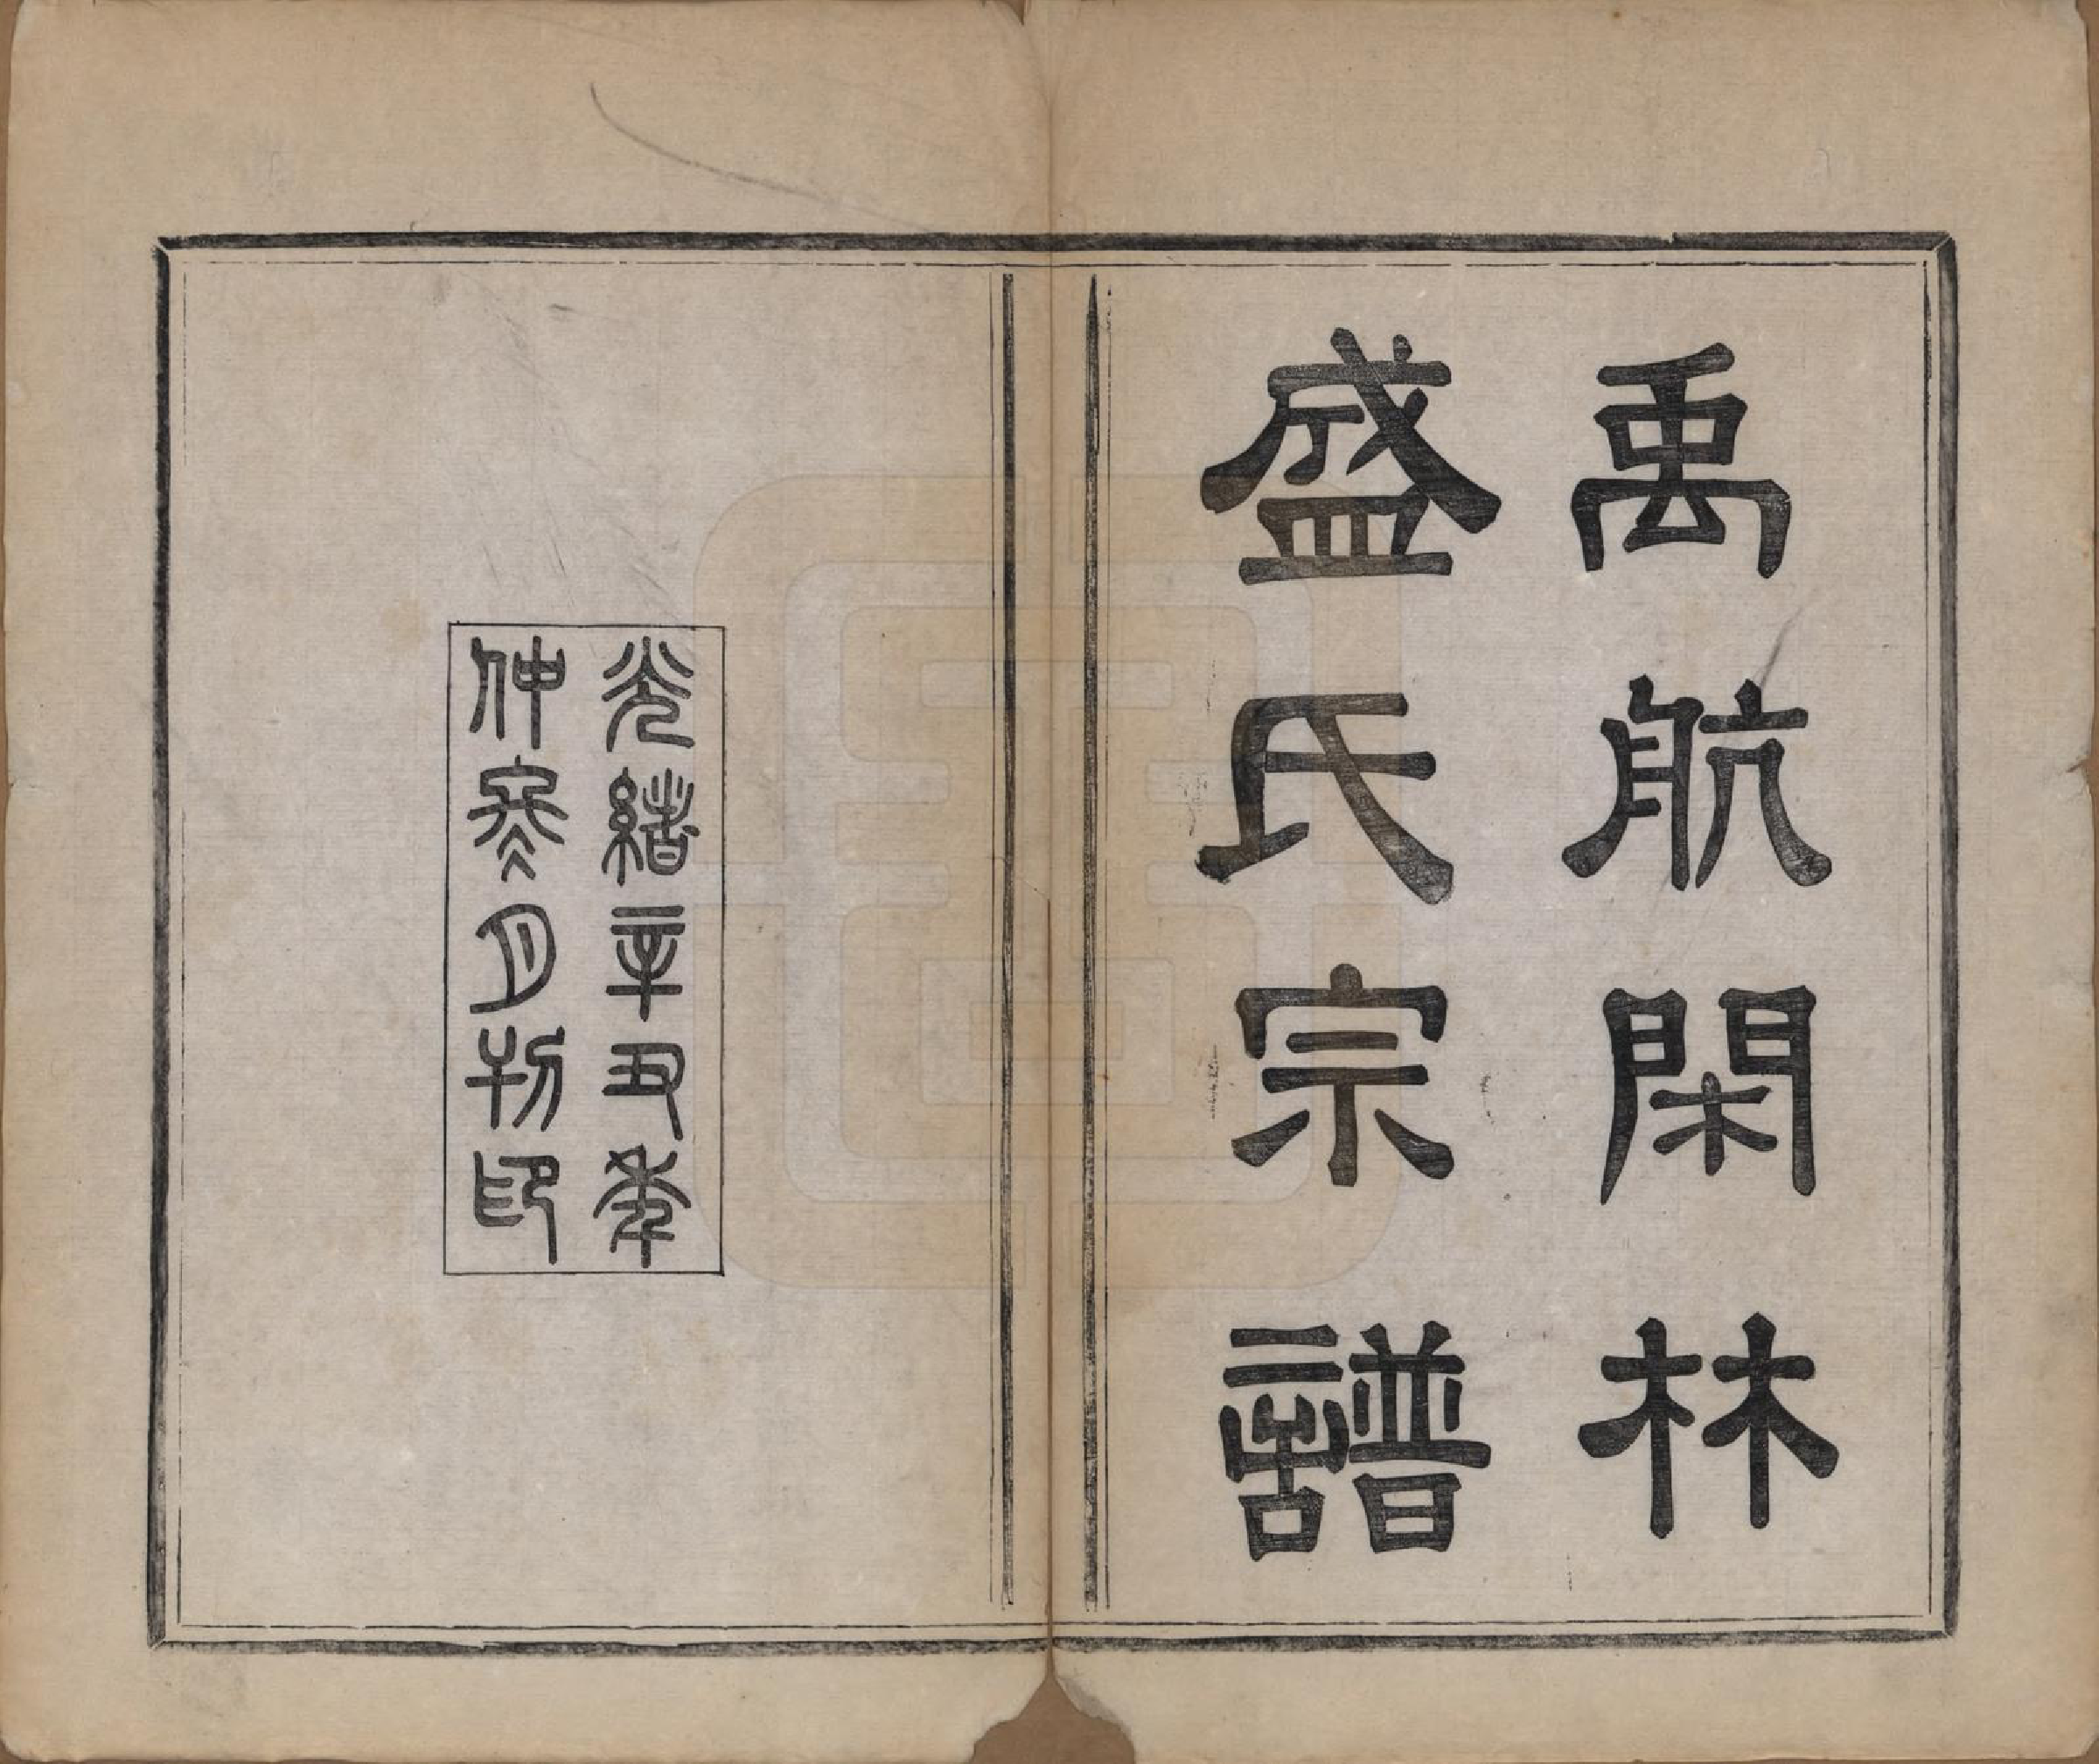 禹航閑林
盛氏宗譜
光緒辛丑年
仲冬月刊印